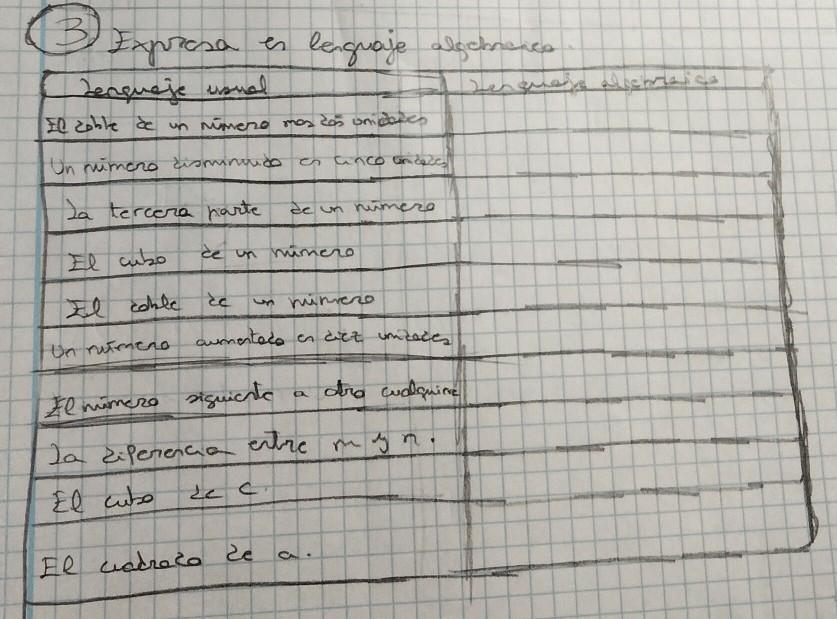 3 Expresa en lenguaje algebraico.
Lenguaje usual Lenguaje algebraico
El doble de un número mas dos unidades
Un número disminuido en cinco unidades
La tercera parte de un número
El cubo de un número
El doble de un número
Un número aumentado en diez unidades
El número siguiente a otro cualquiera
La diferencia entre m y n.
El cubo de c.
El cuadrado de a.